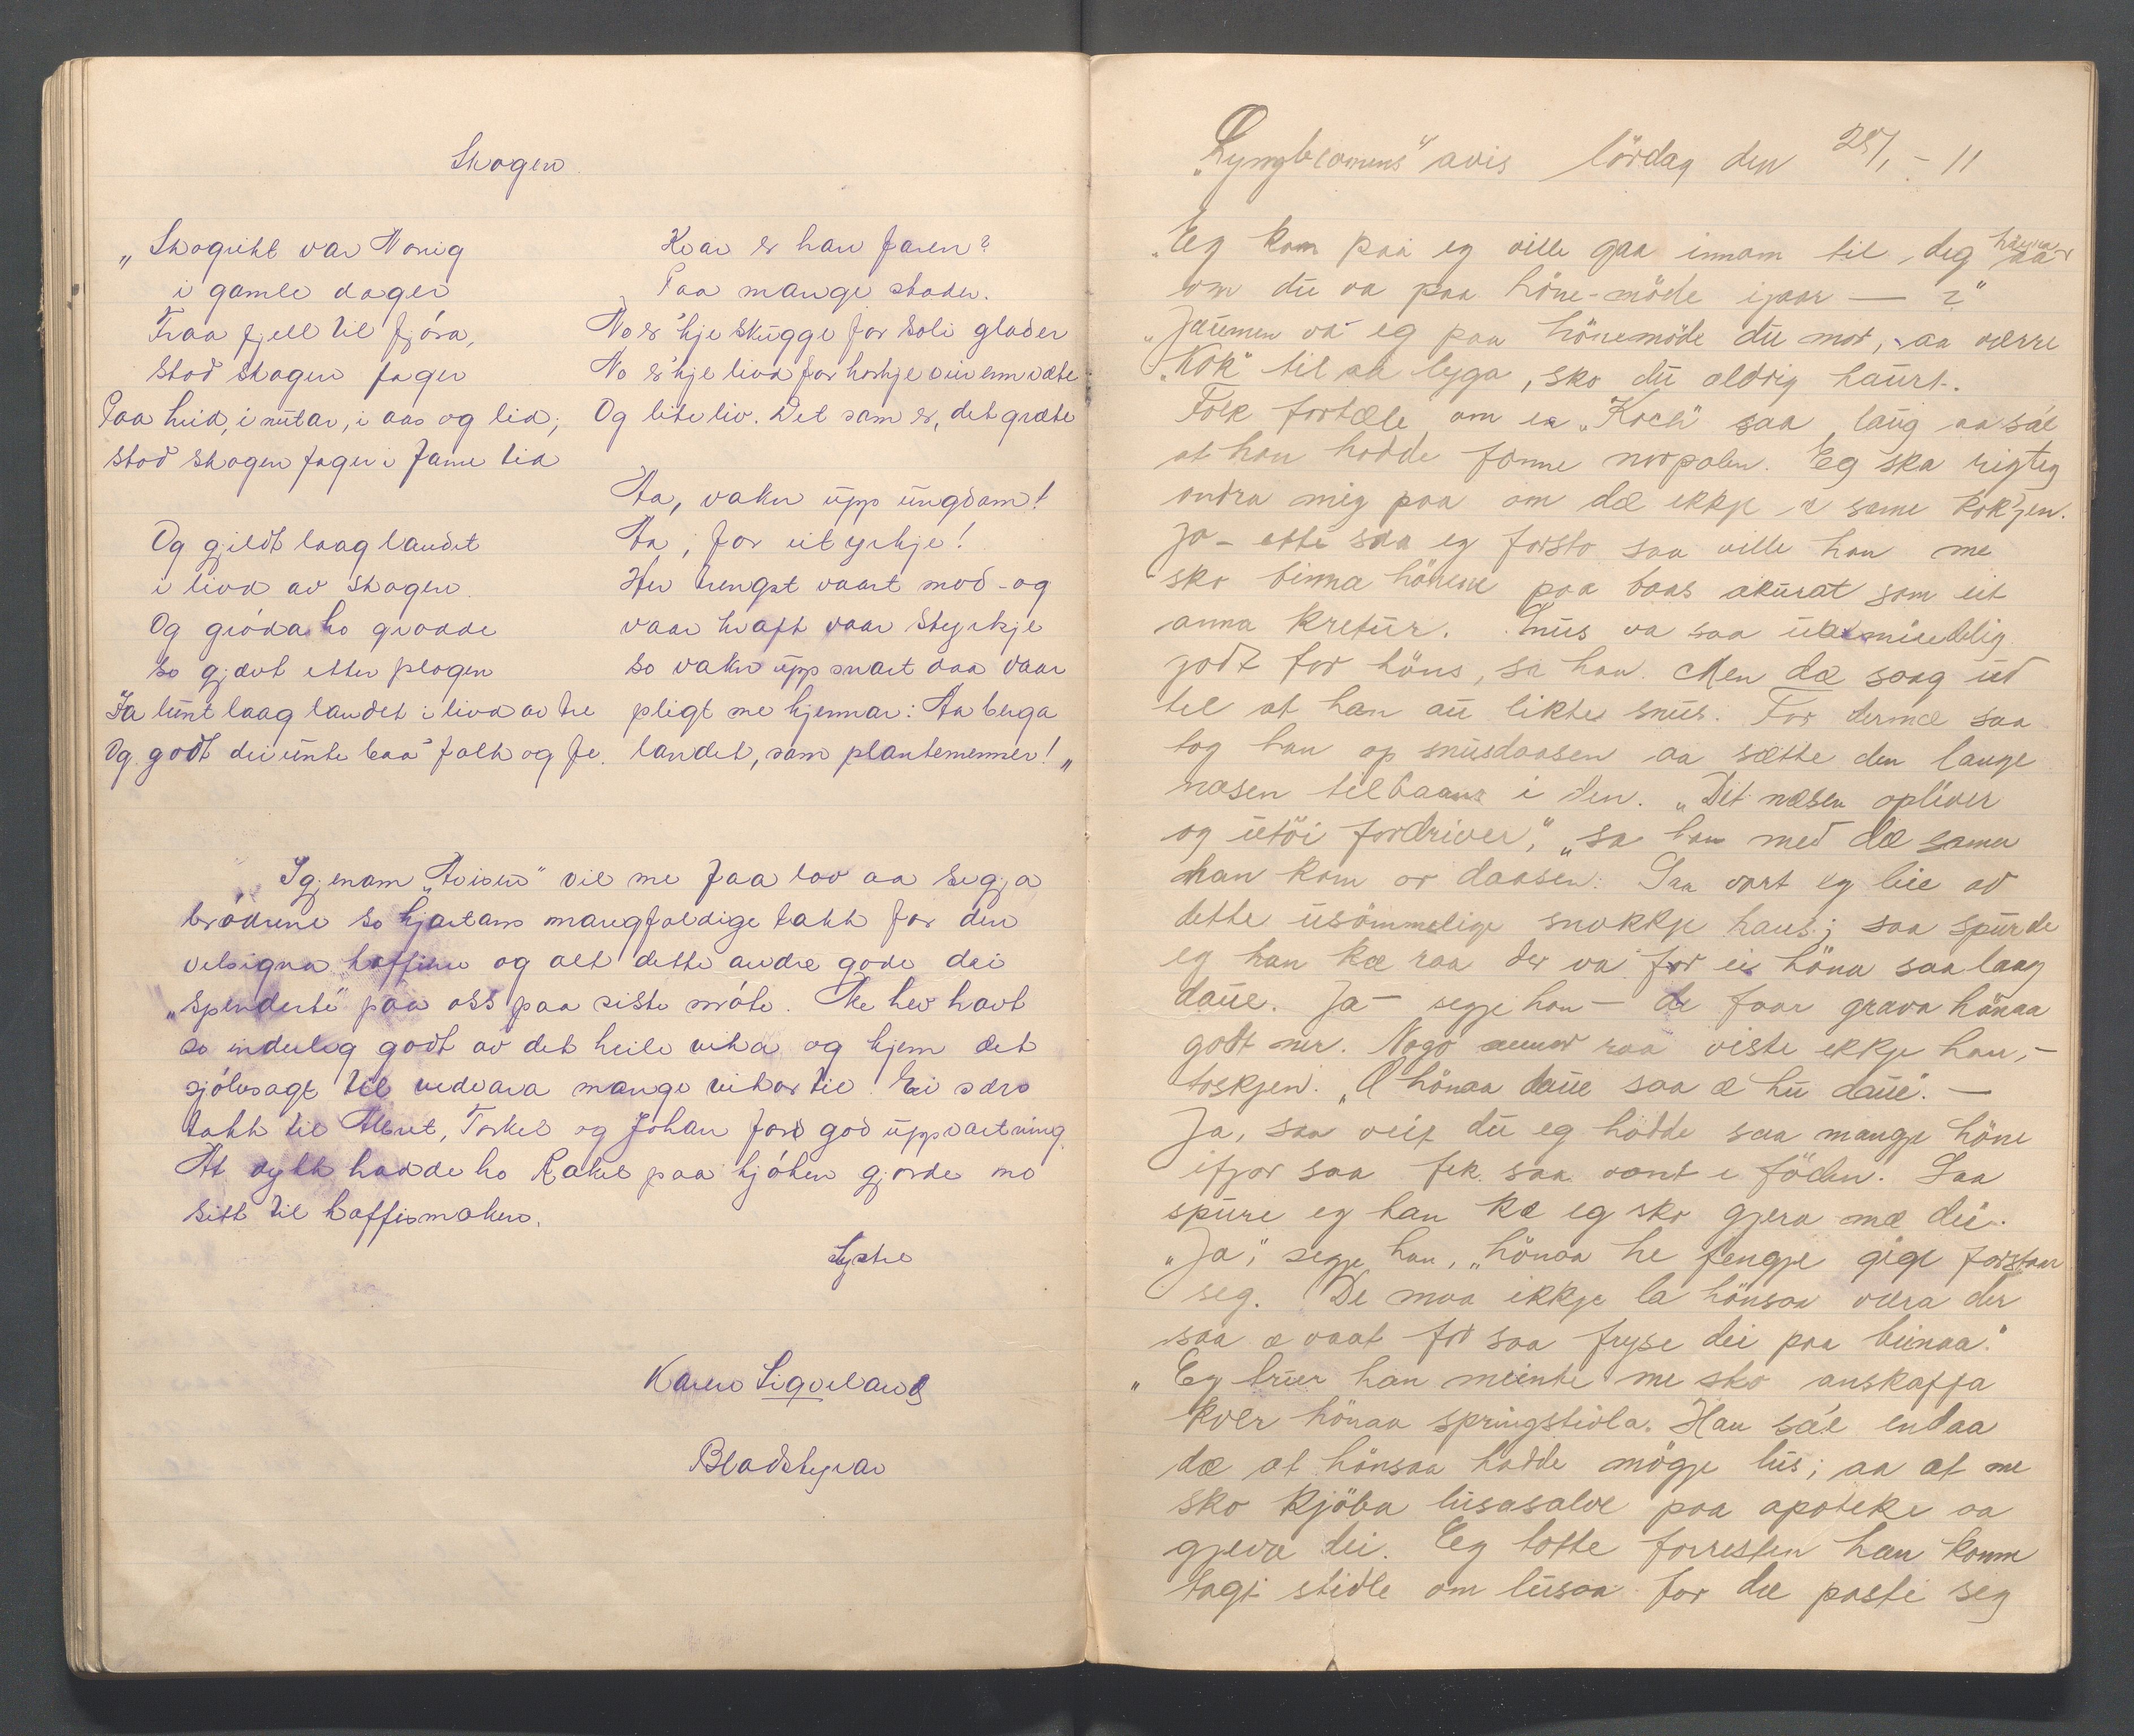 Skogen
„Skogrikt var Norig
i gamle dager
Fraa fjell til fjóra,
stod skogen fager
Paa heid, i nutar, i aas og lid;
stod skogen fager i fame tid
Og gjildt laag landet
i livd av skogen.
Og gróda ho grodde
so gjævt etter plogen
Ja lunt laag landet i livd av tre
Og godt dei unte baa' folk og fe.
Kvar er han faren?
Paa mange stader.
No er 'kje skugge for soli glader
No er 'kje livd for korkje vin enn væte
Og lite liv. Det som er, det græte
Aa, vakn upp ungdom!
Aa, for eit yrkje!
Her trengst vaart mod - og
vaar kraft vaar styrkje
so vakn upp snart daa vaar
pligt me kjennar: Aa berga
landet, som plantemenner!"
Igjenom „Avisen" vil me faa lov aa segja
brødrene so hjartans mangfoldige takk for den
velsigna kaffien og alt dette andre gode dei
„spenderte" paa oss paa siste móte. Me hev havt
so inderleg godt av det heile vika og kjem det
sjólvsagt til vedvara mange vikor til. Ei særs
takk til Meret, Torkel og Johan for god uppvartning.
At dykk hadde ho Rakel paa kjóken gjorde mo
sitt til kaffismaken.
Systre
Karen Sigveland
Bladstyrar
„Lyngblomens" avis lördag den 28/1 - 11
„Eg kom paa eg ville gaa innom til deg höyra
om du va paa höne-möde igaar — ?"
„Jaumen va eg paa hönemöde du mot, aa værre
„Kok" til aa lyga, sko du aldrig haurt.
Folk fortæle om en „Koch" saa laug aa sae
at han hadde fonne norpolen. Eg ska rigteg
ondra mig paa om dæ ekkje æ same kok'jen.
Ja - ette saa eg forsto saa ville han me
sko binna hönene paa baas akurat som eit
anna kretur. Snus va saa ualmindelig
godt for höns, sa han. Men dæ saag ud
til at han au likte snus. For dermæ saa
tog han op snusdaasen aa sætte den lange
nasen tilbaans i den. „Det næsen opliver
og utöi fordriver," sa han med dæ samen
han kom or daasen. Saa vart eg leie av
dette usömmelige snokkje hans; saa spurde
eg han kæ raa der va for ei höna saa laag
daue. Ja - segje han - de faar grava hönaa
godt ner. Nogo annor raa viste ekkje han, -
toskjen. „Æ hönaa daue saa æ hu daue". —
Ja, saa veit du eg hadde saa mangje höne
ifjor saa fek saa vont i föden. Saa
spure eg han kæ eg sko gjera mæ dei.
„Ja," segje han, „hönaa he fengje gigt forstaar
seg. De maa ikkje la hönsaa væra der
saa æ vaat for saa fryse dei paa beinaa."
„Eg truer han meinte me sko anskaffa
kver hönaa springstivla. Han sae endaa
dæ at hönsaa hadde mögje lus; aa at me
sko kjöba lusasalve paa apoteke aa
gjeva dei. Eg totte forresten han konne
tagt stidle om lusaa for dæ paste seg